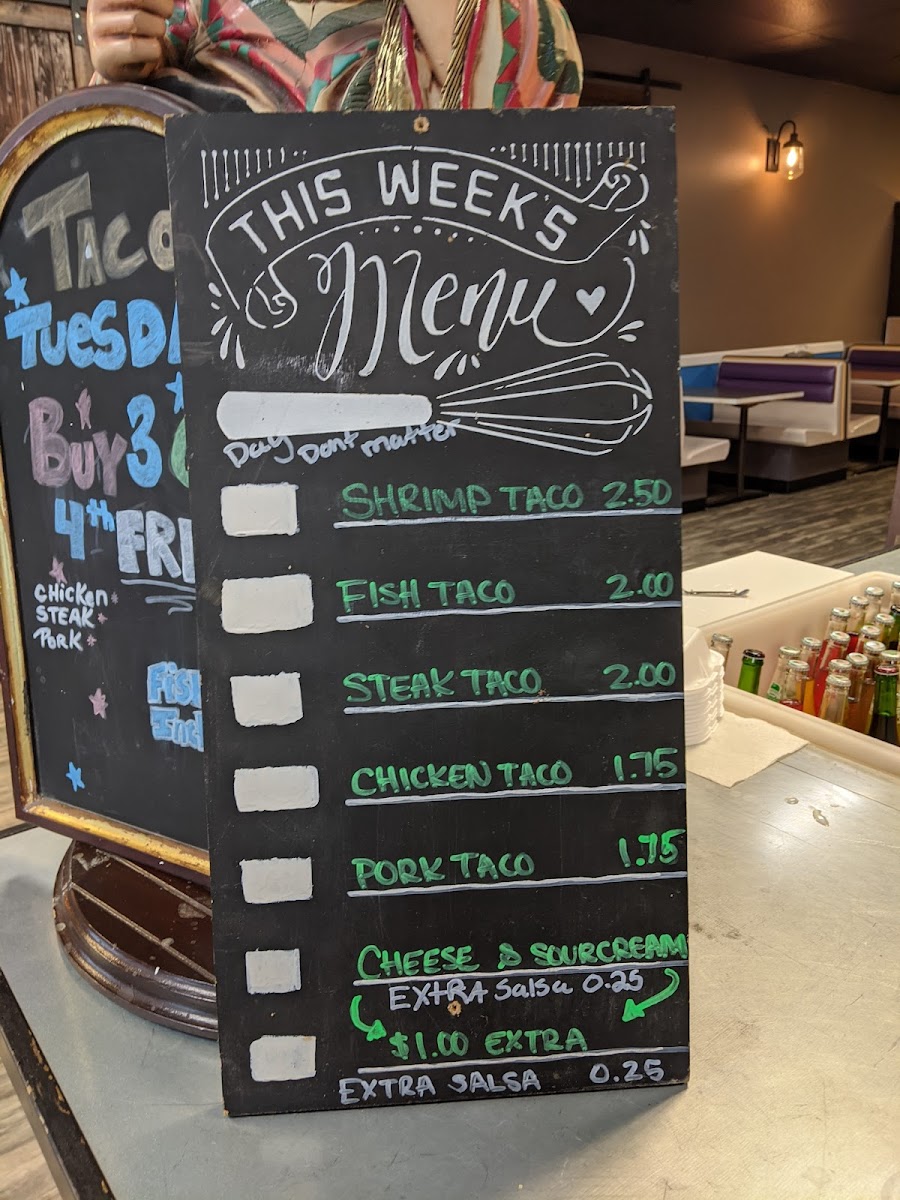 THIS WEEK'S
Menu
Day Dont matter
SHRIMP TACO 2.50
FISH TACO 2.00
STEAK TACO 2.00
CHICKEN TACO 1.75
PORK TACO 1.75
CHEESE & SOURCREAM
EXTRA Salsa 0.25
$1.00 EXTRA
EXTRA SALSA 0.25
TACO
TUESDA
BUY 3
4th FRE
CHICKEN
STEAK
PORK
Fish
Incl